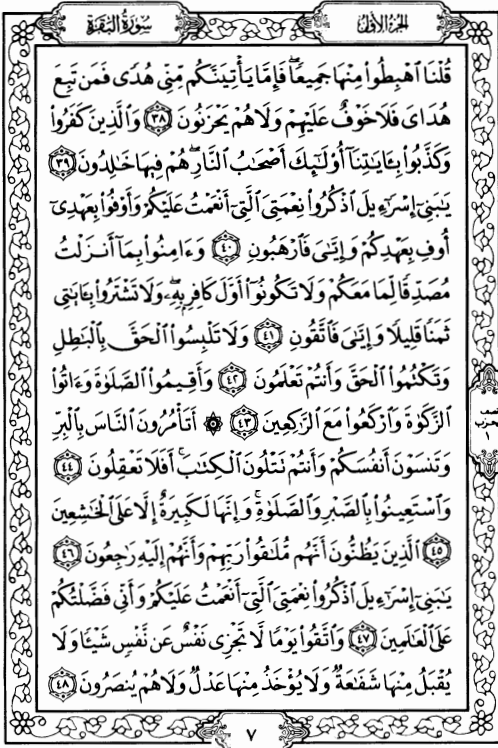 الجزء الأول
سورة البقرة
قُلْنَا ٱهْبِطُوا۟ مِنْهَا جَمِيعًۭا ۖ فَإِمَّا يَأْتِيَنَّكُم مِّنِّى هُدًۭى فَمَن تَبِعَ
هُدَاىَ فَلَا خَوْفٌ عَلَيْهِمْ وَلَا هُمْ يَحْزَنُونَ ٣٨ وَٱلَّذِينَ كَفَرُوا۟
وَكَذَّبُوا۟ بِـَٔايَـٰتِنَآ أُو۟لَـٰٓئِكَ أَصْحَـٰبُ ٱلنَّارِ ۖ هُمْ فِيهَا خَـٰلِدُونَ ٣٩
يَـٰبَنِىٓ إِسْرَٰٓءِيلَ ٱذْكُرُوا۟ نِعْمَتِىَ ٱلَّتِىٓ أَنْعَمْتُ عَلَيْكُمْ وَأَوْفُوا۟ بِعَهْدِىٓ
أُوفِ بِعَهْدِكُمْ وَإِيَّـٰىَ فَٱرْهَبُونِ ٤٠ وَءَامِنُوا۟ بِمَآ أَنزَلْتُ
مُصَدِّقًۭا لِّمَا مَعَكُمْ وَلَا تَكُونُوٓا۟ أَوَّلَ كَافِرٍۭ بِهِۦ ۖ وَلَا تَشْتَرُوا۟ بِـَٔايَـٰتِى
ثَمَنًۭا قَلِيلًۭا وَإِيَّـٰىَ فَٱتَّقُونِ ٤١ وَلَا تَلْبِسُوا۟ ٱلْحَقَّ بِٱلْبَـٰطِلِ
وَتَكْتُمُوا۟ ٱلْحَقَّ وَأَنتُمْ تَعْلَمُونَ ٤٢ وَأَقِيمُوا۟ ٱلصَّلَوٰةَ وَءَاتُوا۟
ٱلزَّكَوٰةَ وَٱرْكَعُوا۟ مَعَ ٱلرَّٰكِعِينَ ٤٣ ۞ أَتَأْمُرُونَ ٱلنَّاسَ بِٱلْبِرِّ
وَتَنسَوْنَ أَنفُسَكُمْ وَأَنتُمْ تَتْلُونَ ٱلْكِتَـٰبَ ۚ أَفَلَا تَعْقِلُونَ ٤٤
وَٱسْتَعِينُوا۟ بِٱلصَّبْرِ وَٱلصَّلَوٰةِ ۚ وَإِنَّهَا لَكَبِيرَةٌ إِلَّا عَلَى ٱلْخَـٰشِعِينَ
٤٥ ٱلَّذِينَ يَظُنُّونَ أَنَّهُم مُّلَـٰقُوا۟ رَبِّهِمْ وَأَنَّهُمْ إِلَيْهِ رَٰجِعُونَ ٤٦
يَـٰبَنِىٓ إِسْرَٰٓءِيلَ ٱذْكُرُوا۟ نِعْمَتِىَ ٱلَّتِىٓ أَنْعَمْتُ عَلَيْكُمْ وَأَنِّى فَضَّلْتُكُمْ
عَلَى ٱلْعَـٰلَمِينَ ٤٧ وَٱتَّقُوا۟ يَوْمًۭا لَّا تَجْزِى نَفْسٌ عَن نَّفْسٍۢ شَيْـًۭٔا وَلَا
يُقْبَلُ مِنْهَا شَفَـٰعَةٌۭ وَلَا يُؤْخَذُ مِنْهَا عَدْلٌۭ وَلَا هُمْ يُنصَرُونَ ٤٨
٧
١